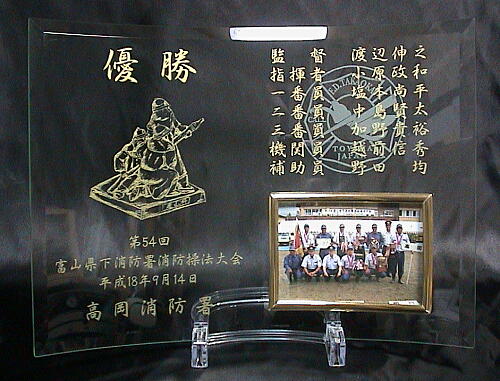 優勝
監督 渡辺伸之
指揮者 小原政和
一番員 塩本尚平
二番員 中島賢太
三番員 加野貴裕
機関員 越前信秀
補助員 野田均
F.D.TAKAOKA
TOYAMA
JAPAN
第54回
富山県下消防署消防操法大会
平成18年9月14日
高岡消防署